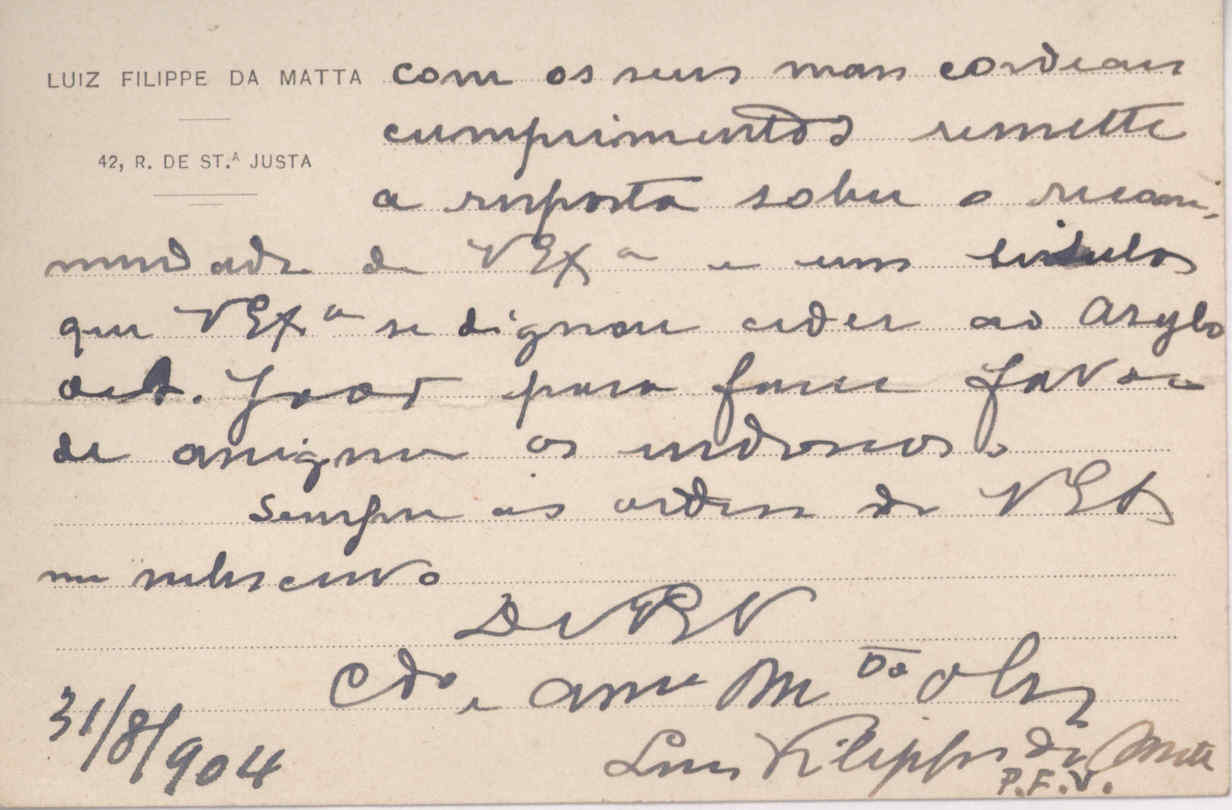 LUIZ FILIPPE DA MATTA com os seus mais cordeaes
cumprimentos remette
42, R. DE ST.A JUSTA
a resposta sobre o recom-
mendado de VExª e uns titulos
que VExª se dignou ceder ao Asylo
de S. João para fazer favor
de assignar os endossos.
Sempre ás ordens de VEx
me subscrevo
De VEx
Cdo e amo Mto Obr
31/8/904
Luiz Filippe da Matta
P.F.V.